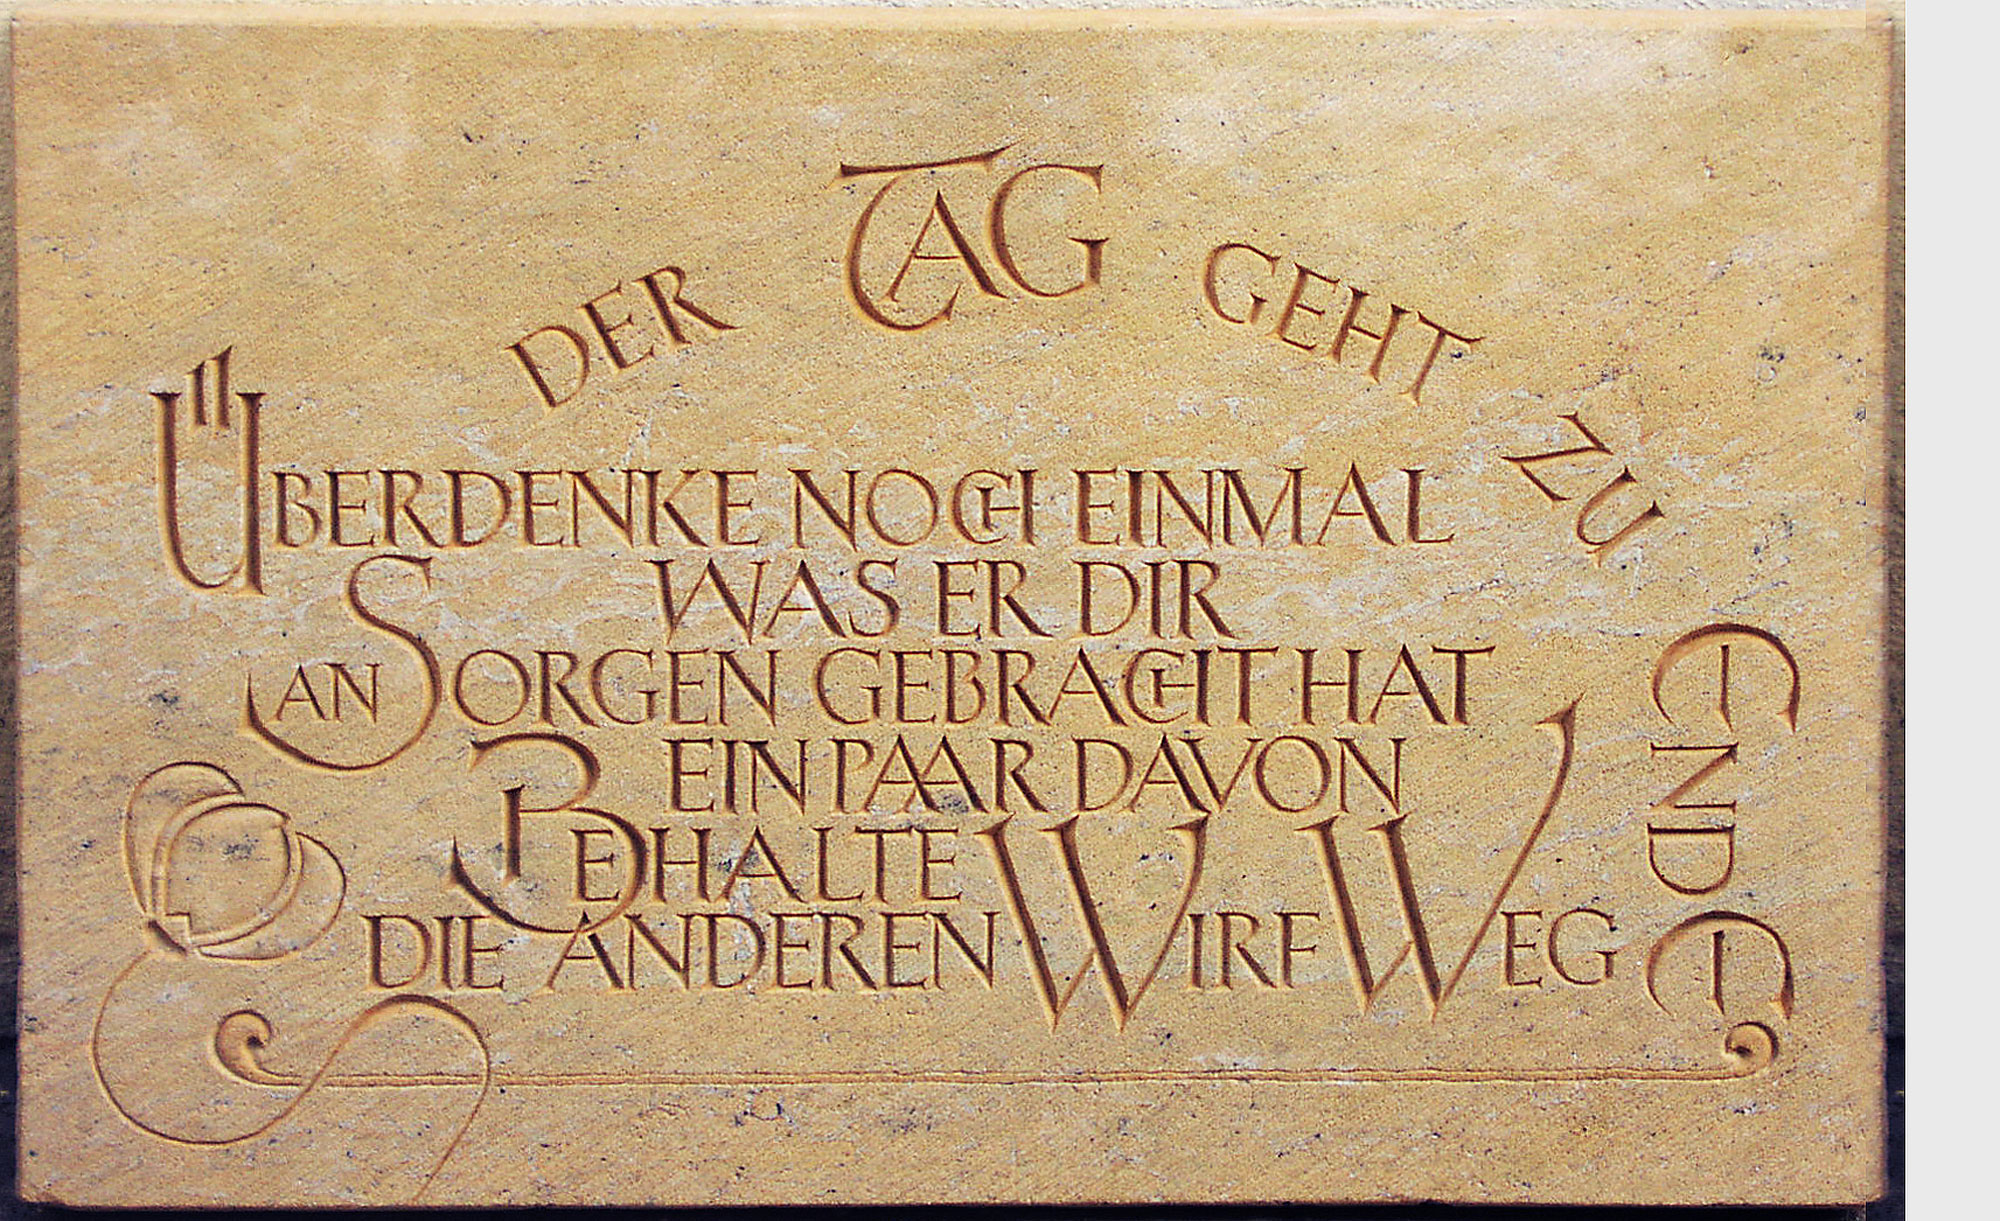 DER TAG GEHT ZU ENDE
ÜBERDENKE NOCH EINMAL
WAS ER DIR
AN SORGEN GEBRACHT HAT
EIN PAAR DAVON
BEHALTE
DIE ANDEREN WIRF WEG